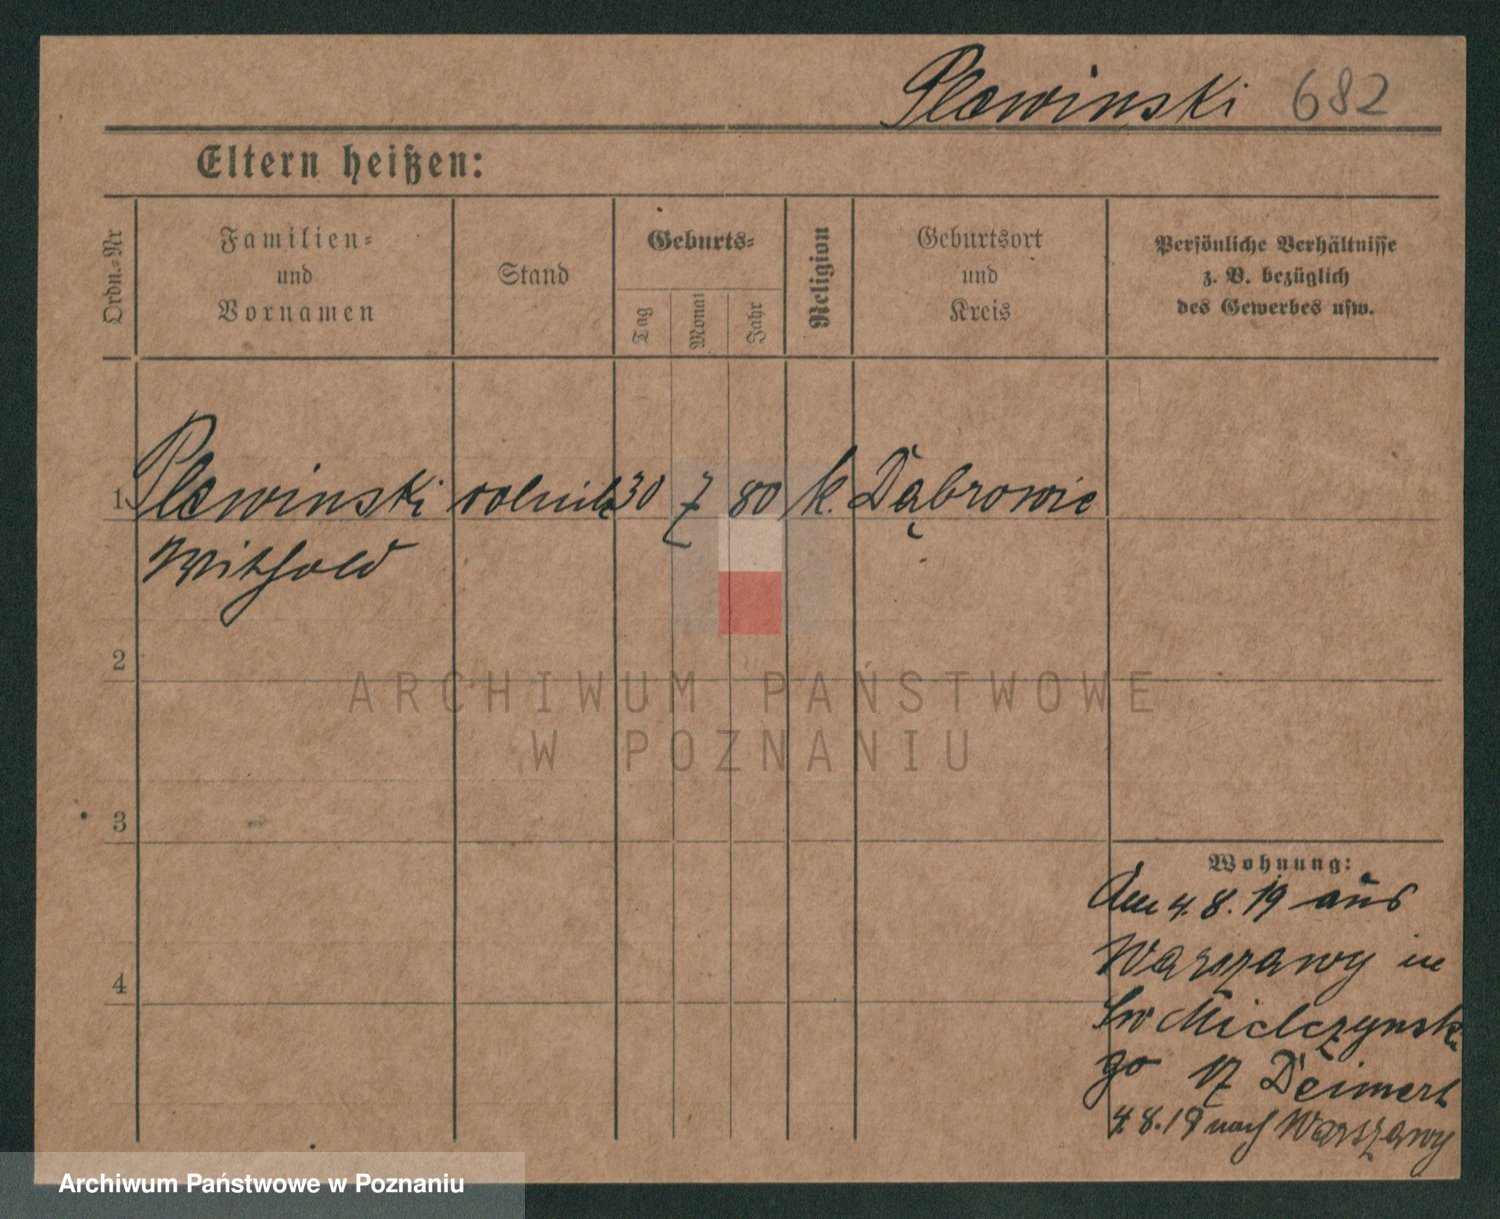 Plewinski 682
Eltern heißen:
Ordn.=Nr
Familien=
und
Vornamen
Stand
Geburts=
Tag
Monat
Jahr
Religion
Geburtsort
und
Kreis
Persönliche Verhältnisse
z. B. bezüglich
des Gewerbes usw.
1 Plewinski rolnik 30 7 80 k. Dąbrowie
Withold
2
ARCHIWUM PAŃSTWOWE
W POZNANIU
3
Wohnung:
4. 8. 19 aus
Warszawy in
Św Mielżynski
go 17
4
4. 8. 19 nach Warszawy
Archiwum Państwowe w Poznaniu